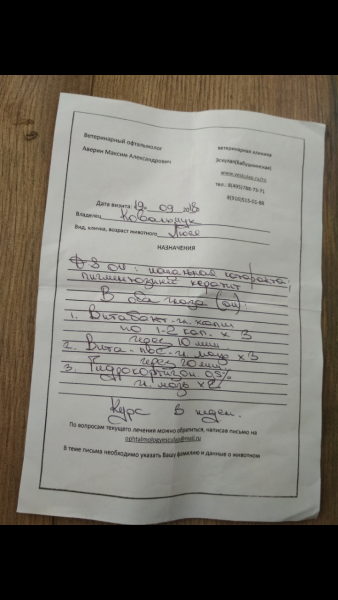 Ветеринарный офтальмолог
Аверин Максим Александрович
ветеринарная клиника
Эскулап(Бабушкинская)
www.veskulap.ru/ru
тел.: 8(495)786-71-71
8(916)515-01-89
Дата визита: 19. 09 2018
Владелец Ковальчук
Вид, кличка, возраст животного Люся
НАЗНАЧЕНИЯ
D-S OU: начальная катаракта,
пигментозный кератит
В оба глаза (OU):
1. Витабакт-гл. капли
по 1-2 кап. х 3
через 10 мин
2. Вита-пос-гл мазь х3
через 20 мин
3. Гидрокортизон 0,5%
гл. мазь х2
Курс нед.
По вопросам текущего лечения можно обратиться, написав письмо на
ophtalmologyesculap@mail.ru
В теме письма необходимо указать Вашу фамилию и данные о животном